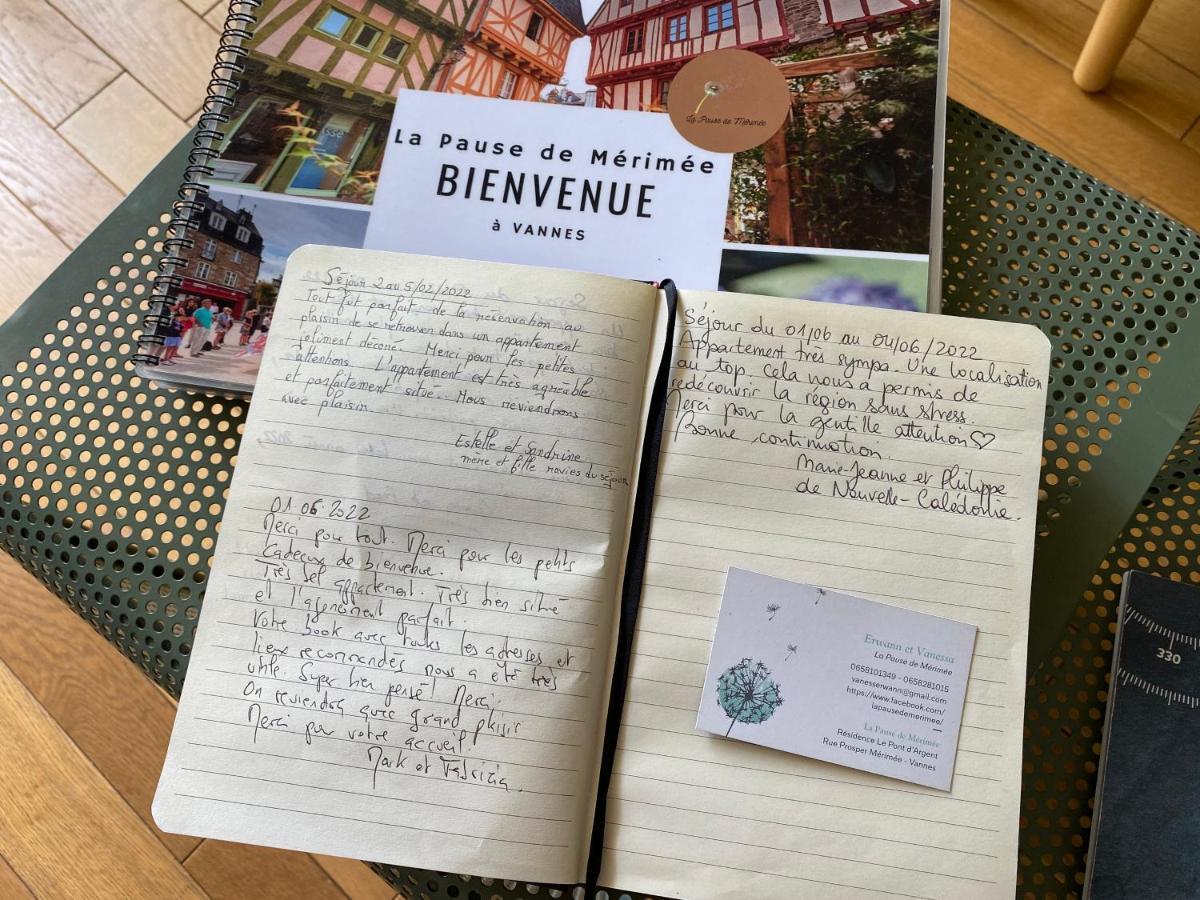 La Pause de Mérimée
BIENVENUE
à VANNES
La Pause de Mérimée
Séjour 2 au 5/02/2022
Tout fut parfait de la réservation au
plaisir de se retrouver dans un appartement
joliment décoré. Merci pour les petites
attentions. L'appartement est très agréable
et parfaitement situé. Nous reviendrons
avec plaisir
Estelle et Sandrine
mère et fille ravies du séjour
01.06.2022
Merci pour tout. Merci pour les petits
Cadeaux de bienvenue.
Très bel appartement. Très bien situé
et l'agencement parfait.
Votre book avec toutes les adresses et
lieux recommandés nous a été très
utile. Super bien pensé! Merci.
On reviendra avec grand plaisir
Merci pour votre accueil!
Mark et Fabrizia.
Séjour du 01/06 au 04/06/2022
Appartement très sympa. Une localisation
au top. Cela nous a permis de
redécouvrir la région sans stress.
Merci pour la gentille attention ♡
Bonne continuation.
Marie-Jeanne et Philippe
de Nouvelle-Calédonie.
Erwann et Vanessa
La Pause de Mérimée
0658101349 - 0658281015
vanesserwann@gmail.com
https://www.facebook.com/
lapausedemerimee/
La Pause de Mérimée
Résidence Le Pont d'Argent
Rue Prosper Mérimée - Vannes
330